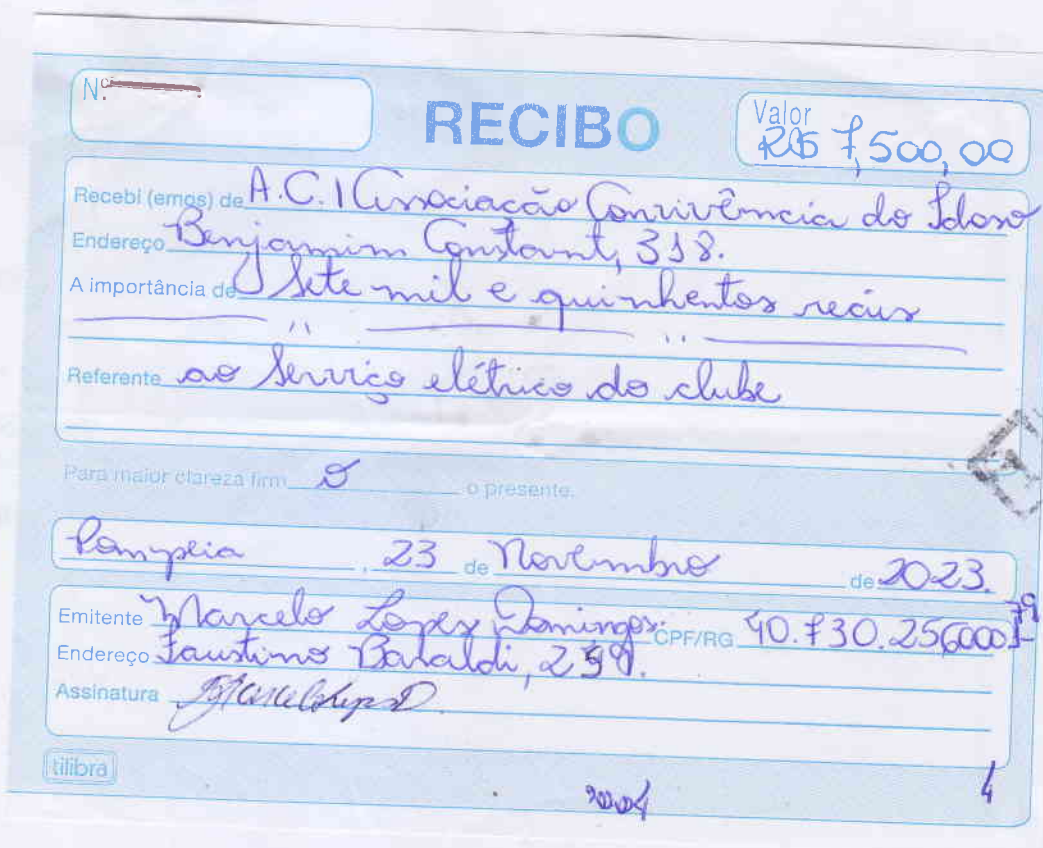 Nº
RECIBO
Valor
R$ 7,500,00
Recebi (emos) de A.C.I (Associação Convivência do Idoso
Endereço Benjamim Constant, 318.
A importância de Sete mil e quinhentos reais
Referente ao Serviço elétrico do clube
Para maior clareza firm o o presente.
Pompeia, 23 de Novembro de 2023.
Emitente Marcelo Lopes Domingos. CPF/RG 40.730.256000
Endereço Faustino
Assinatura
tilibra
4